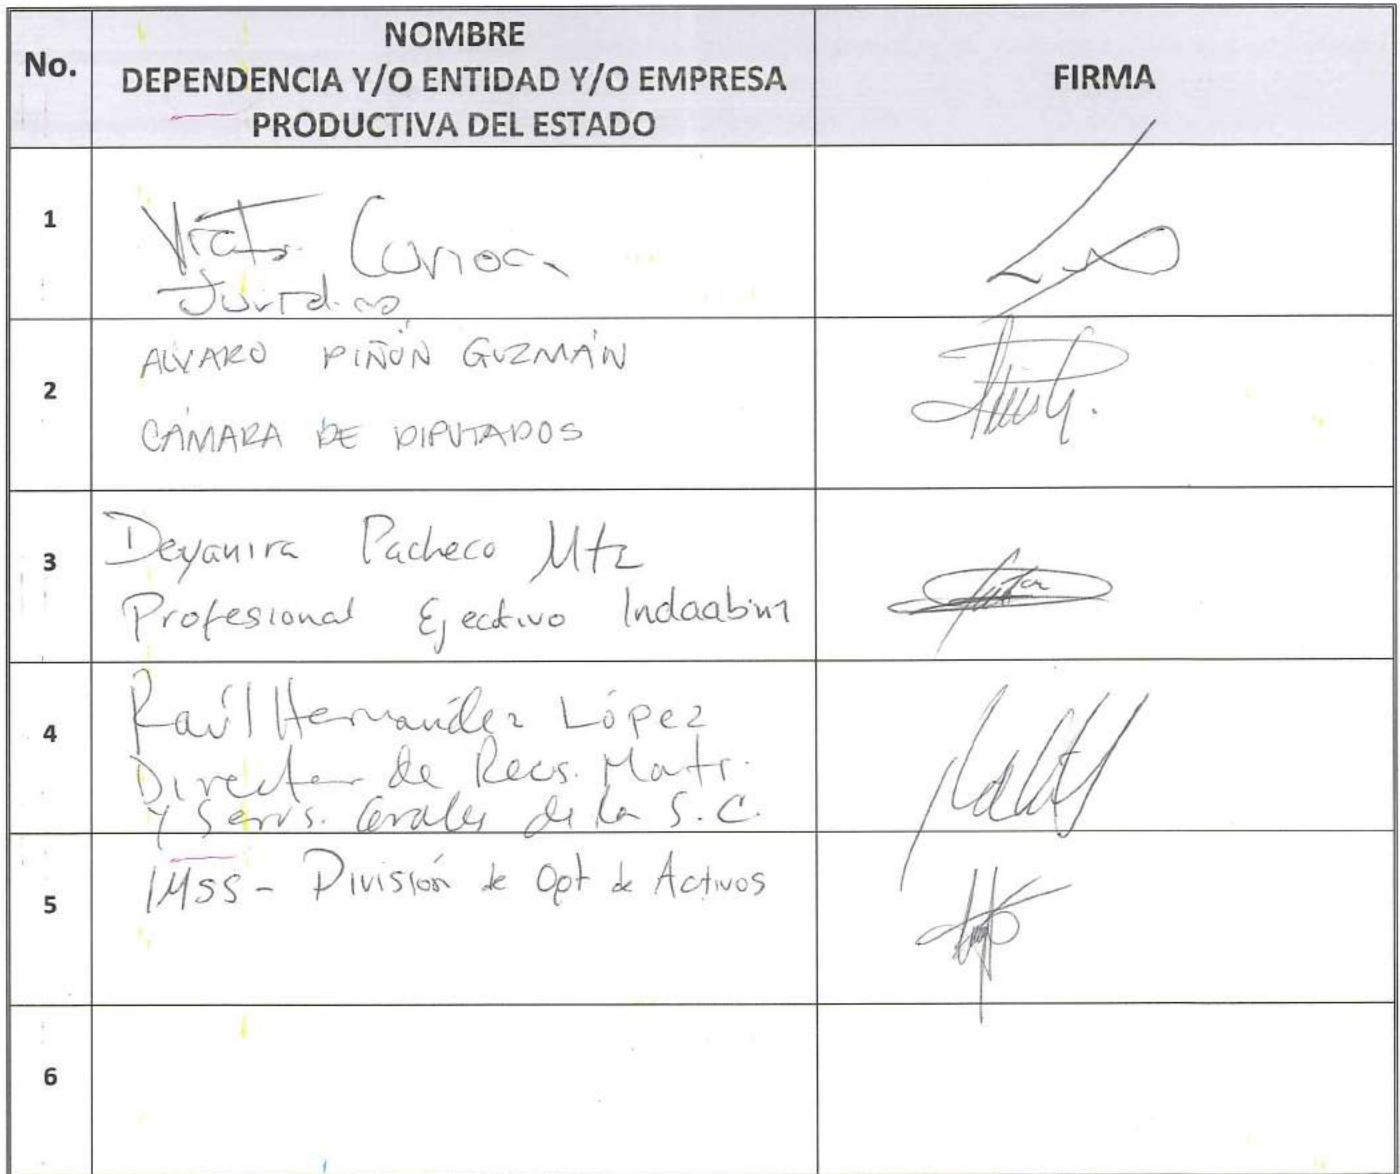 No.
NOMBRE
DEPENDENCIA Y/O ENTIDAD Y/O EMPRESA
PRODUCTIVA DEL ESTADO
FIRMA
1
Jurídico
2
ALVARO PIÑÓN GUZMÁN
CÁMARA DE DIPUTADOS
3
Deyanira Pacheco Mtz
Profesional Ejecutivo Indaabin
4
Raúl Hernández López
Director de Recs. Matr.
y Servs. Grales de la S.C.
5
IMSS - División de Opt de Activos
6